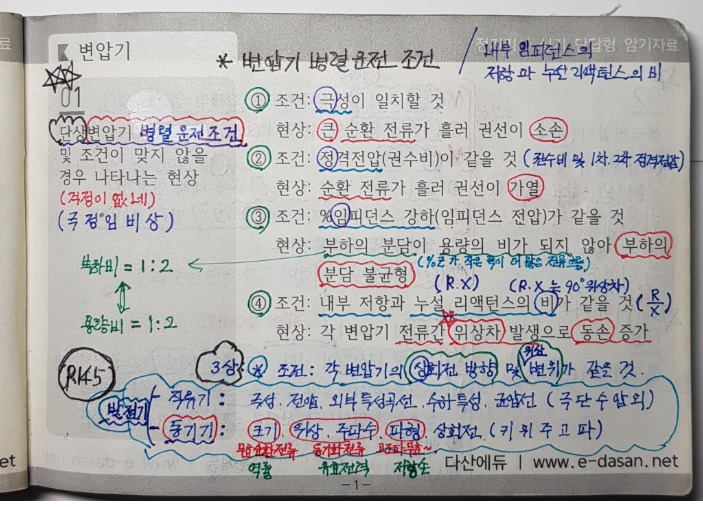 변압기
* 변압기 병렬운전 조건
내부 임피던스의
저항과 누설리액턴스의 비
01
단상변압기 병렬운전조건
및 조건이 맞지 않을
경우 나타나는 현상
(극정%임비상)
부하비 = 1:2
용량비 = 1:2
① 조건: 극성이 일치할 것
현상: 큰 순환 전류가 흘러 권선이 소손
② 조건: 정격전압(권수비)이 같을 것 (권수비 및 1차, 2차 정격전압)
현상: 순환 전류가 흘러 권선이 가열
③ 조건: %임피던스 강하(임피던스 전압)가 같을 것
현상: 부하의 분담이 용량의 비가 되지 않아 부하의
(%Z가 작은 쪽이 더 많은 전류 흐름)
분담 불균형
(R.X) (R.X는 90° 위상차)
④ 조건: 내부 저항과 누설 리액턴스의 비가 같을 것 (R/X)
현상: 각 변압기 전류간 위상차 발생으로 동손 증가
R145
3상 * 조건: 각 변압기의 상회전 방향 및 위상 변위가 같을 것.
발전기
직류기: 극성, 전압, 외부특성곡선, 수하특성, 균압선 (극단수압외)
동기기: 크기, 위상, 주파수, 파형, 상회전. (키위주고파)
무효순환전류 동기화전류 고조파무효~
역률 유효전력 저항손
다산에듀 | www.e-dasan.net
-1-